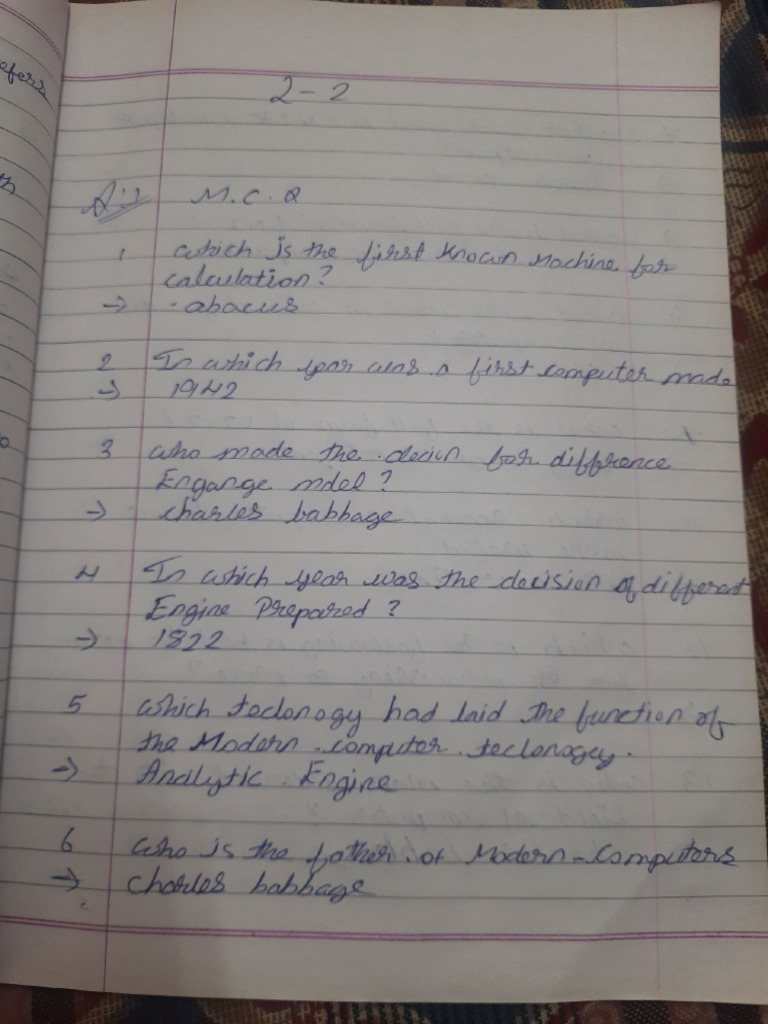 efers
2-2
A:1 M.C.Q
1 which is the first known machine for
calculation?
→ abacus
2 In which year was a first computer made
→ 1942
3 who made the decion for difference
Engange mdel?
→ charles babbage
4 In which year was the decision of different
Engine Prepared?
→ 1822
5 which teclonogy had laid the function of
the Modern computer teclonogey.
→ Analytic Engine
6 who is the father of Modern-Computers
→ charles babbage